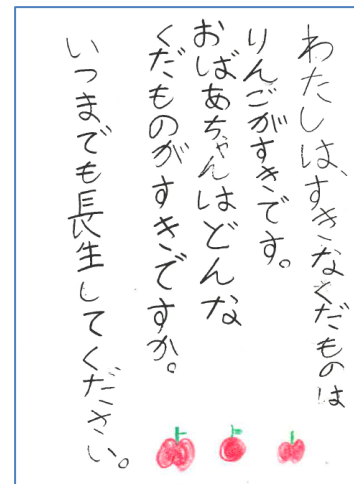 わたしは、すきなくだものは
りんごがすきです。
おばあちゃんはどんな
くだものがすきですか。
いつまでも長生してください。